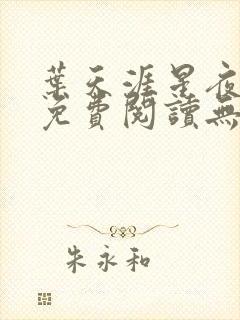 葉天涯星夜
免費閱讀無
朱永和